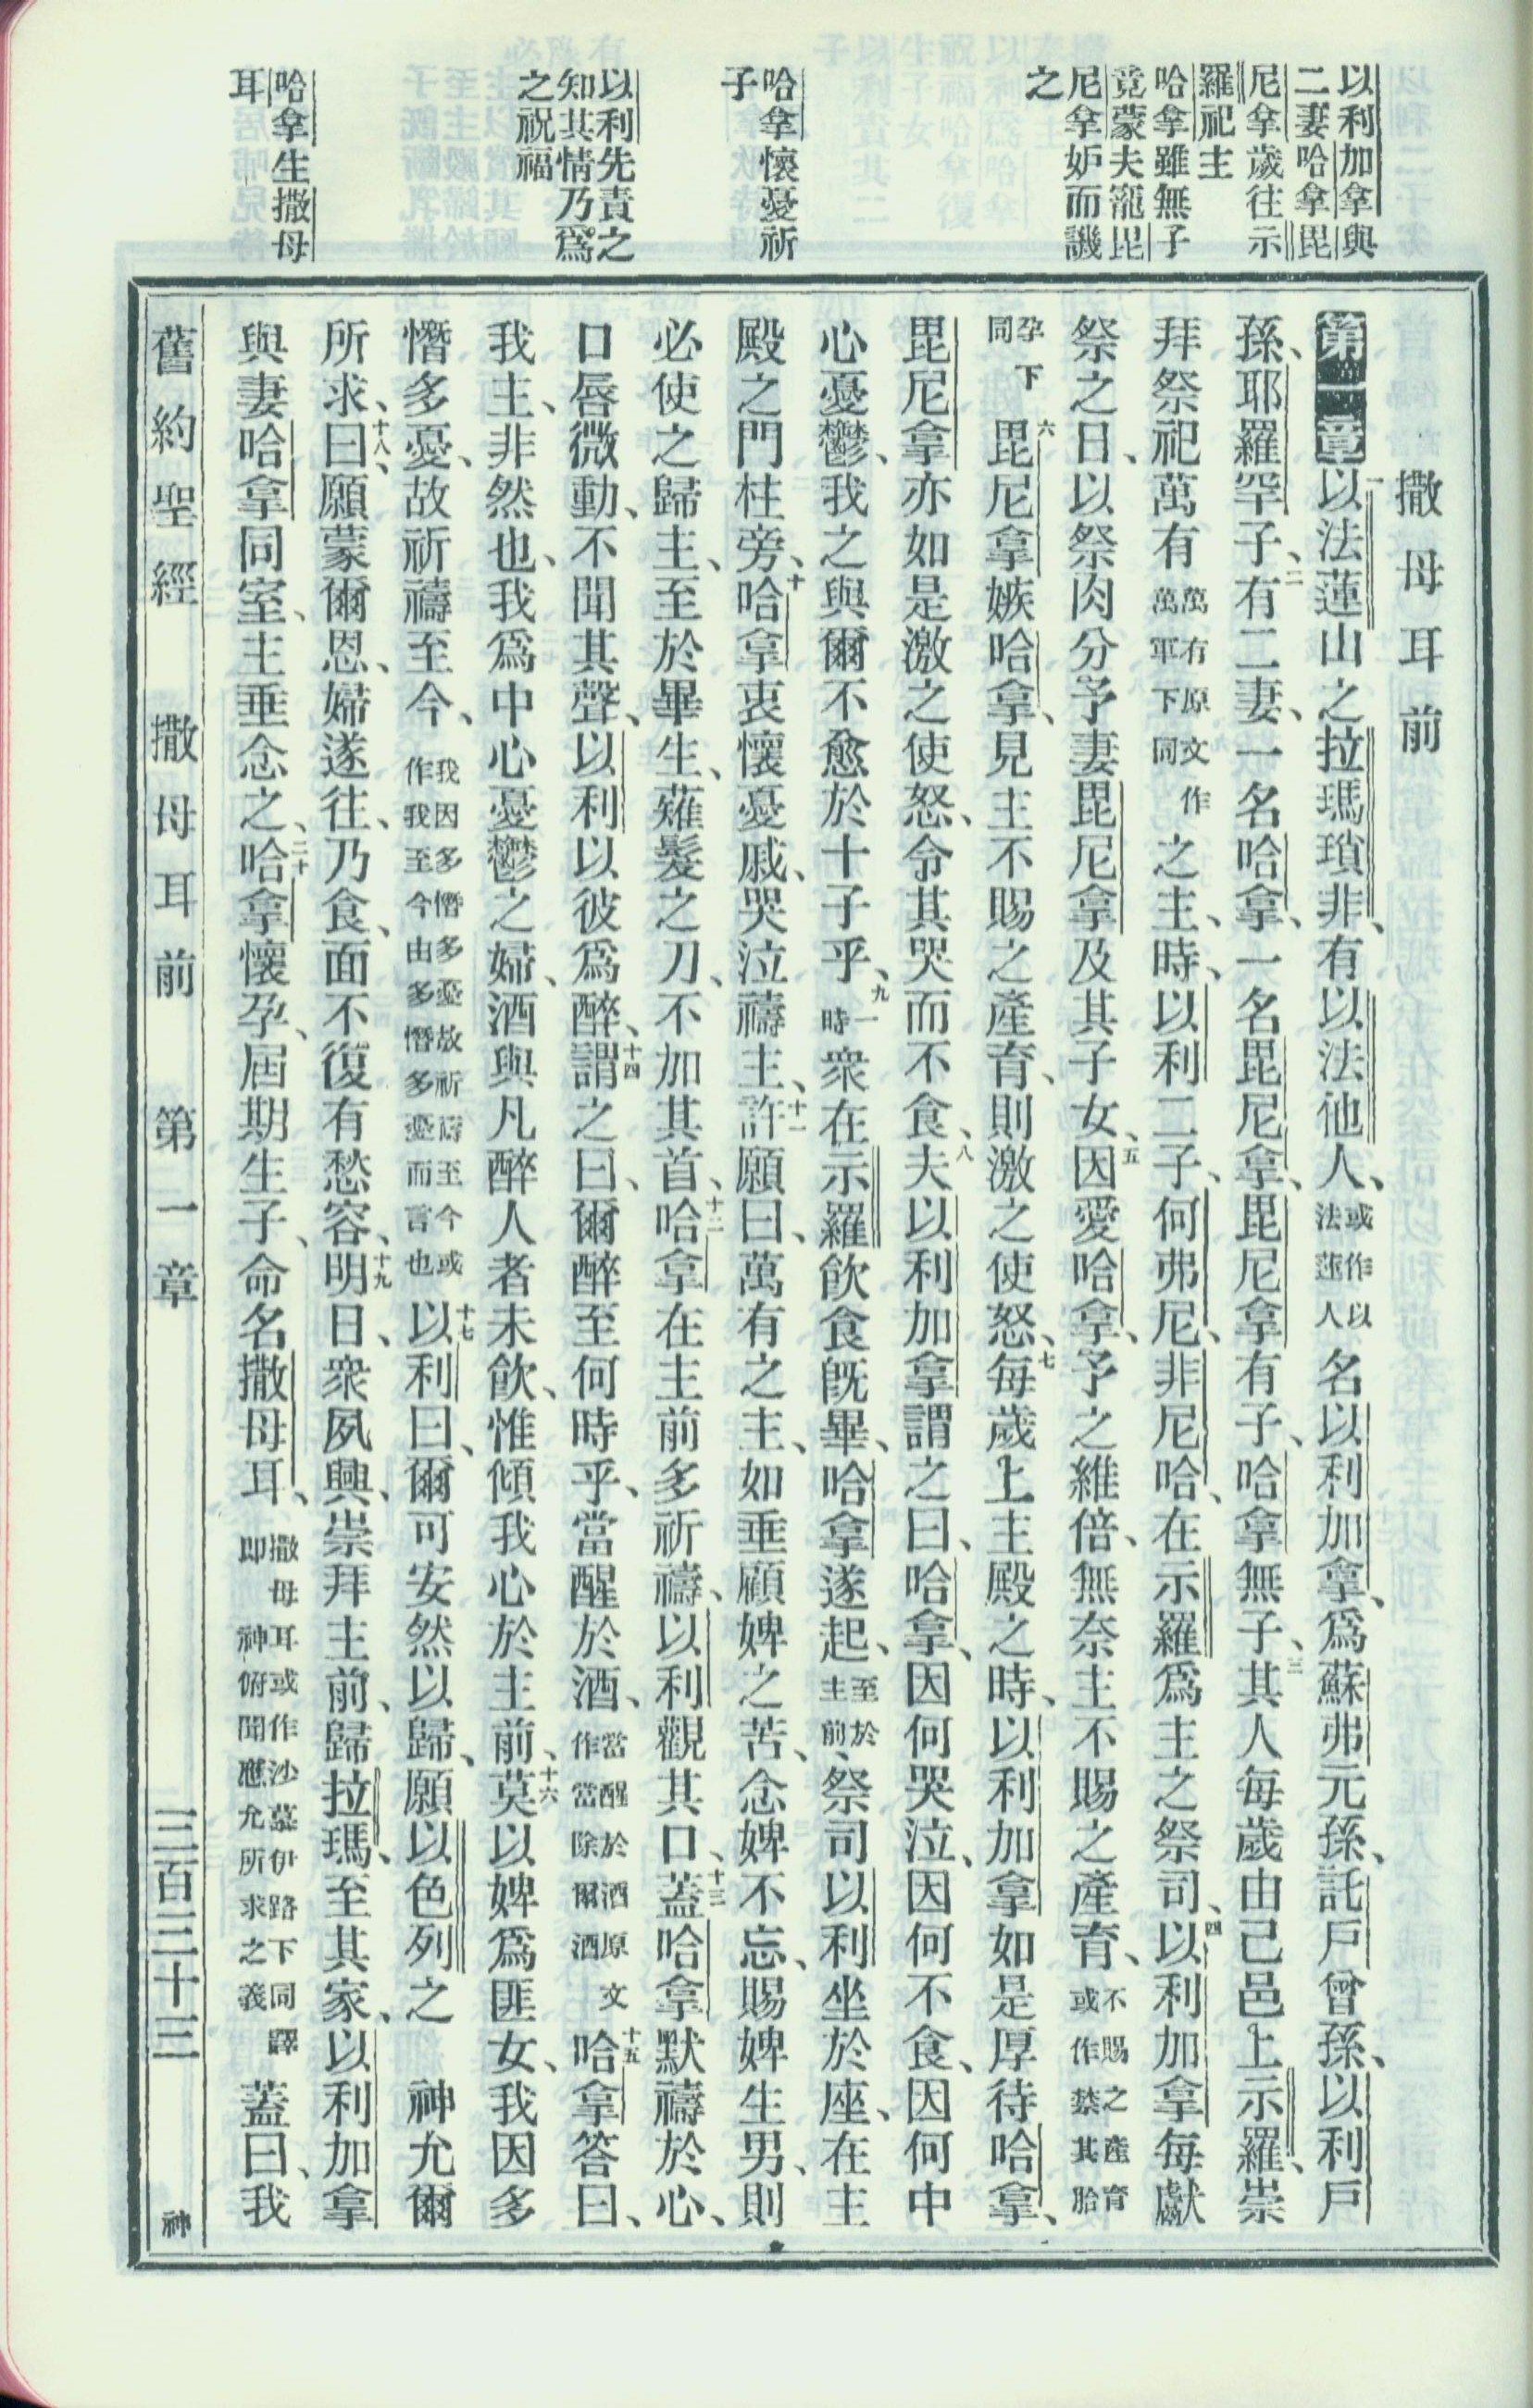 以利加拿與
二妻哈拿毘
尼拿歲往示
羅祀主
哈拿雖無子
竟蒙夫寵毘
尼拿妒而譏
之
哈拿懷憂祈
子
以利先責之
知其情乃爲
之祝福
哈拿生撒母
耳
撒母耳前
第一章一以法蓮山之拉瑪瑣非、有以法他人、或作以法蓮人名以利加拿、爲蘇弗元孫、託戶曾孫、以利戶
孫、耶羅罕子、二有二妻、一名哈拿、一名毘尼拿、毘尼拿有子、哈拿無子、三其人每歲由己邑上示羅、崇
拜祭祀萬有萬有原文作萬軍下同之主、時、以利二子、何弗尼、非尼哈、在示羅爲主之祭司、四以利加拿每獻
祭之日、以祭肉分予妻毘尼拿及其子女、五因愛哈拿、予之維倍、無奈主不賜之產育、不賜之產育或作禁其胎
孕下同六毘尼拿嫉哈拿、見主不賜之產育、則激之使怒、七每歲上主殿之時、以利加拿如是厚待哈拿、
毘尼拿亦如是激之使怒、令其哭而不食、八夫以利加拿謂之曰、哈拿、因何哭泣、因何不食、因何中
心憂鬱、我之與爾不愈於十子乎、九一時衆在示羅飲食旣畢、哈拿遂起、至於主前祭司以利坐於座、在主
殿之門柱旁、十哈拿衷懷憂戚、哭泣禱主、十一許願曰、萬有之主、如垂顧婢之苦、念婢不忘、賜婢生男、則
必使之歸主、至於畢生、薙髮之刀、不加其首、十二哈拿在主前多祈禱、以利觀其口、十三蓋哈拿默禱於心、
口唇微動、不聞其聲、以利以彼爲醉、十四謂之曰、爾醉至何時乎、當醒於酒、當醒於酒原文作當除爾酒十五哈拿答曰、
我主、非然也、我爲中心憂鬱之婦、酒與凡醉人者未飲、惟傾我心於主前、十六莫以婢爲匪女、我因多
憯多憂、故祈禱至今、我因多憯多憂故祈禱至今或作我至今由多憯多憂而言也十七以利曰、爾可安然以歸、願以色列之　神允爾
所求、十八曰、願蒙爾恩、婦遂往、乃食、面不復有愁容、十九明日、衆夙興、崇拜主前、歸拉瑪、至其家、以利加拿
與妻哈拿同室、主垂念之、二十哈拿懷孕、屆期生子、命名撒母耳、撒母耳或作沙慕伊路下同譯卽　神俯聞應允所求之義蓋曰、我
舊約聖經　撒母耳前　第一章　三百三十三　神